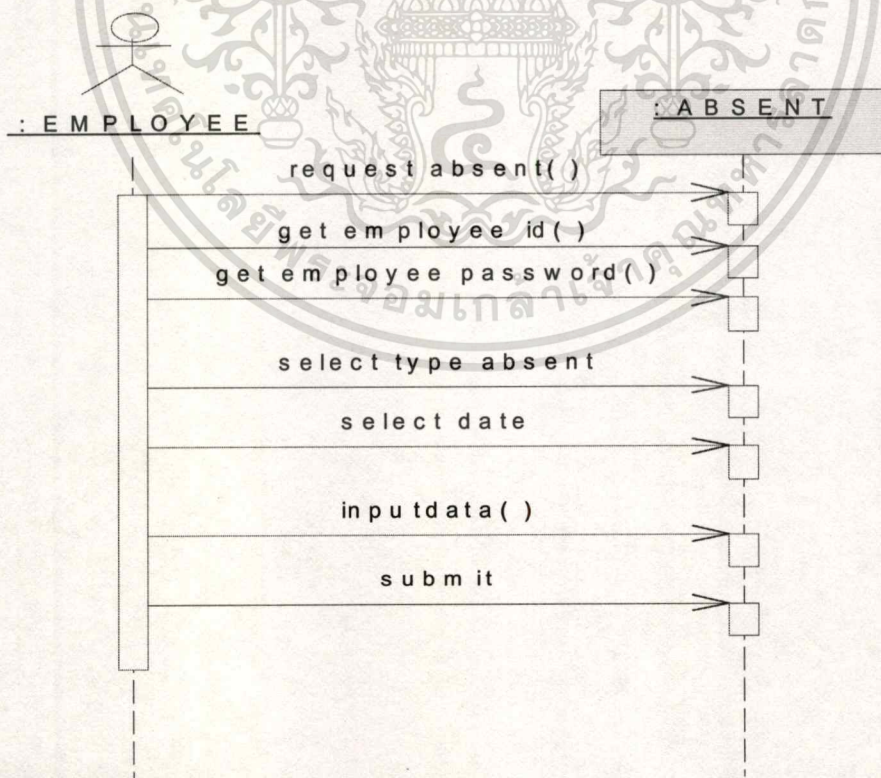 : EMPLOYEE
: ABSENT
request absent()
get employee id()
get employee password()
select type absent
select date
inputdata()
submit
พระจอมเกล้าเจ้าคุณทหารลาดก